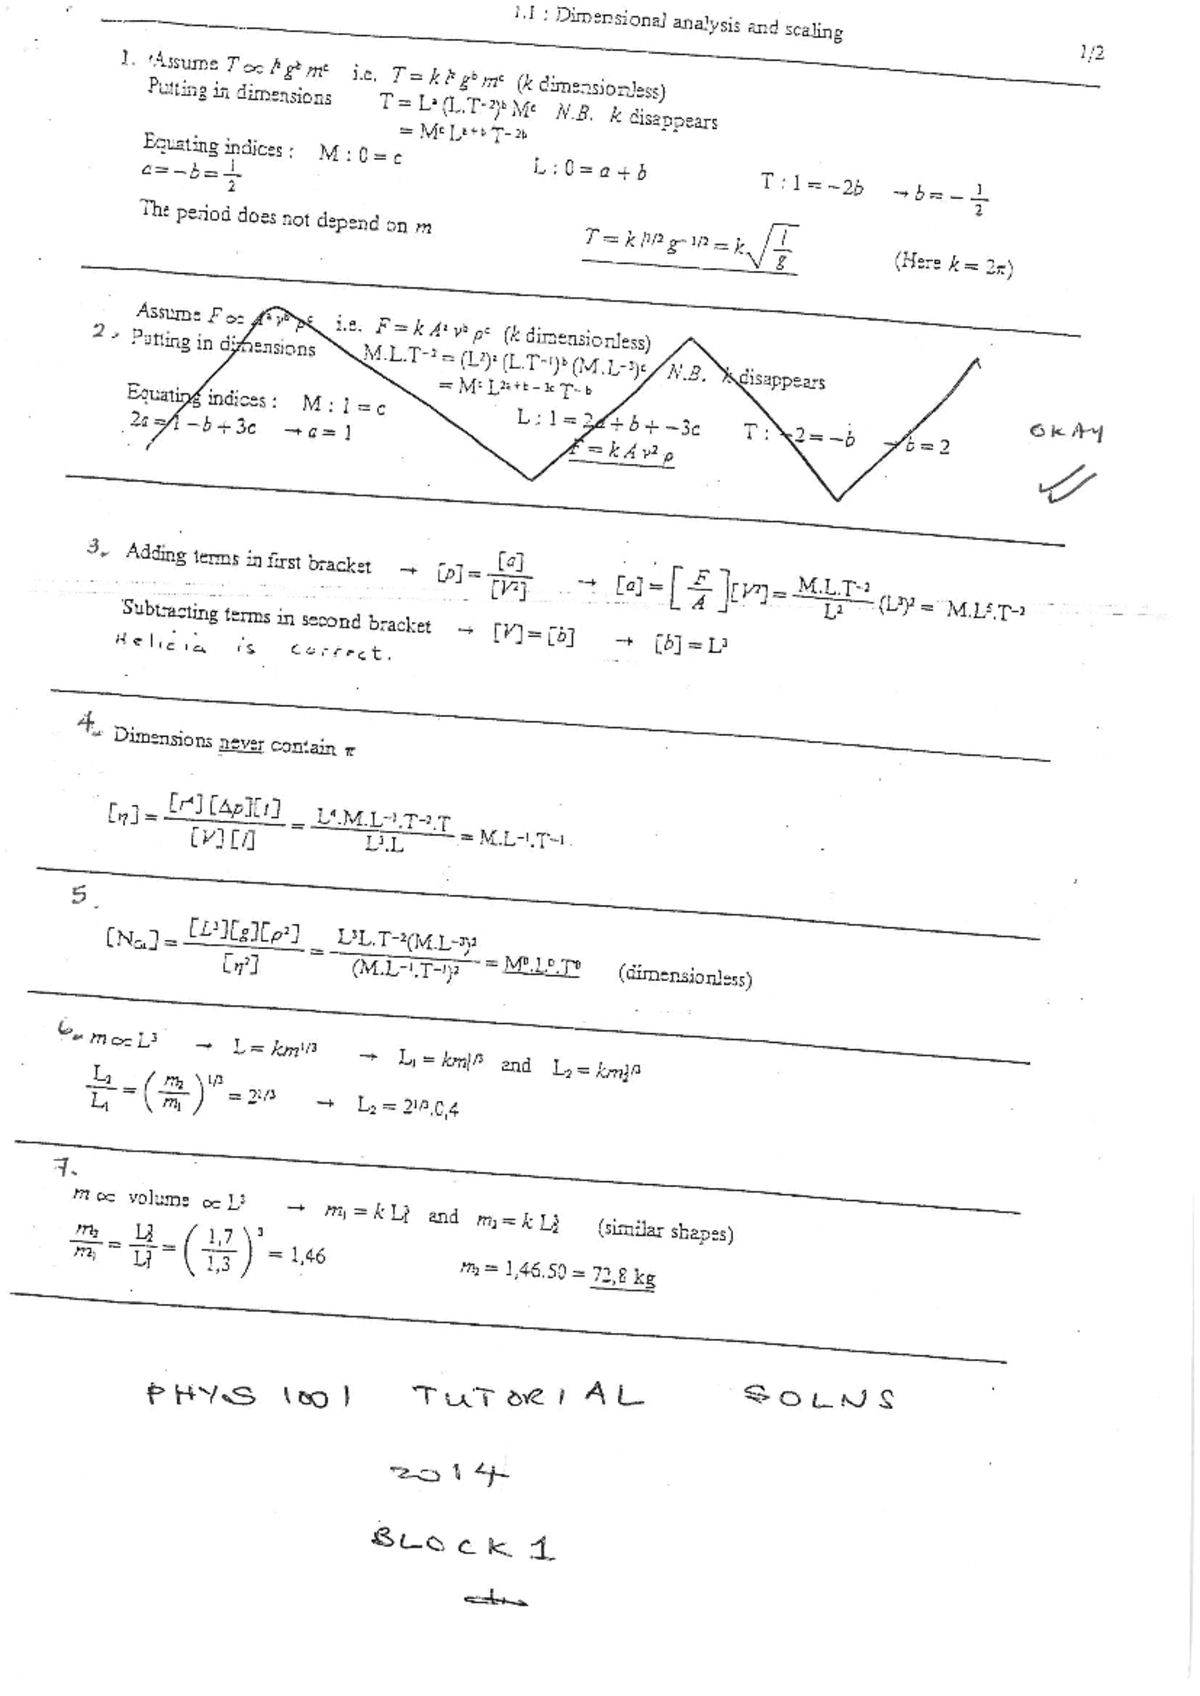 1.1 : Dimensional analysis and scaling
1/2
1. Assume T ∝ lᵃ gᵇ mᶜ i.e. T = k lᵃ gᵇ mᶜ (k dimensionless)
Putting in dimensions T = Lᵃ (L.T⁻²)ᵇ Mᶜ N.B. k disappears
= Mᶜ Lᵃ⁺ᵇ T⁻²ᵇ
Equating indices : M : 0 = c L : 0 = a + b T : 1 = −2b → b = − 1/2
a = −b = 1/2
The period does not depend on m T = k l¹/² g⁻¹/² = k √(l/g) (Here k = 2π)
Assume F ∝ Aᵃ vᵇ ρᶜ i.e. F = k Aᵃ vᵇ ρᶜ (k dimensionless)
2. Putting in dimensions M.L.T⁻² = (L²)ᵃ (L.T⁻¹)ᵇ (M.L⁻³)ᶜ N.B. k disappears
= Mᶜ L²ᵃ⁺ᵇ⁻³ᶜ T⁻ᵇ
Equating indices : M : 1 = c L : 1 = 2a + b + −3c T : −2 = −b → b = 2
2a = 1 − b + 3c → a = 1 F = k A v² ρ
OKAY
3. Adding terms in first bracket → [p] = [a]/[V²] → [a] = [F/A][V²] = M.L.T⁻²/L² (L³)² = M.L⁵.T⁻²
Subtracting terms in second bracket → [V] = [b] → [b] = L³
Helicia is correct.
4. Dimensions never contain π
[η] = [r⁴][Δp][t]/[V][l] = L⁴.M.L⁻¹.T⁻².T/L³.L = M.L⁻¹.T⁻¹.
5.
[N_Ga] = [L³][g][ρ²]/[η²] = L³L.T⁻²(M.L⁻³)²/(M.L⁻¹.T⁻¹)² = M⁰.L⁰.T⁰ (dimensionless)
6. m ∝ L³ → L = km¹/³ → L₁ = km₁¹/³ and L₂ = km₂¹/³
L₂/L₁ = (m₂/m₁)¹/³ = 2¹/³ → L₂ = 2¹/³.0,4
7.
m ∝ volume ∝ L³ → m₁ = k L₁³ and m₂ = k L₂³ (similar shapes)
m₂/m₁ = L₂³/L₁³ = (1,7/1,3)³ = 1,46 m₂ = 1,46.50 = 72,8 kg
PHYS 1001 TUTORIAL SOLNS
2014
BLOCK 1